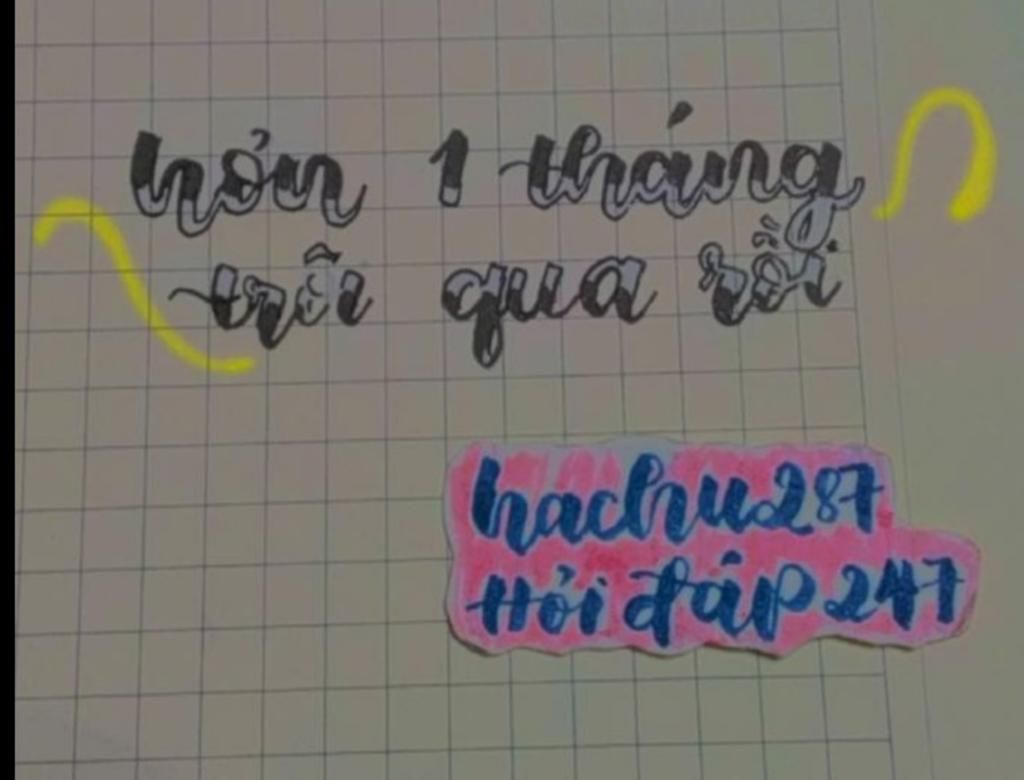 hơn 1 tháng
trôi qua rồi.
hachu287
Hỏi đáp 247